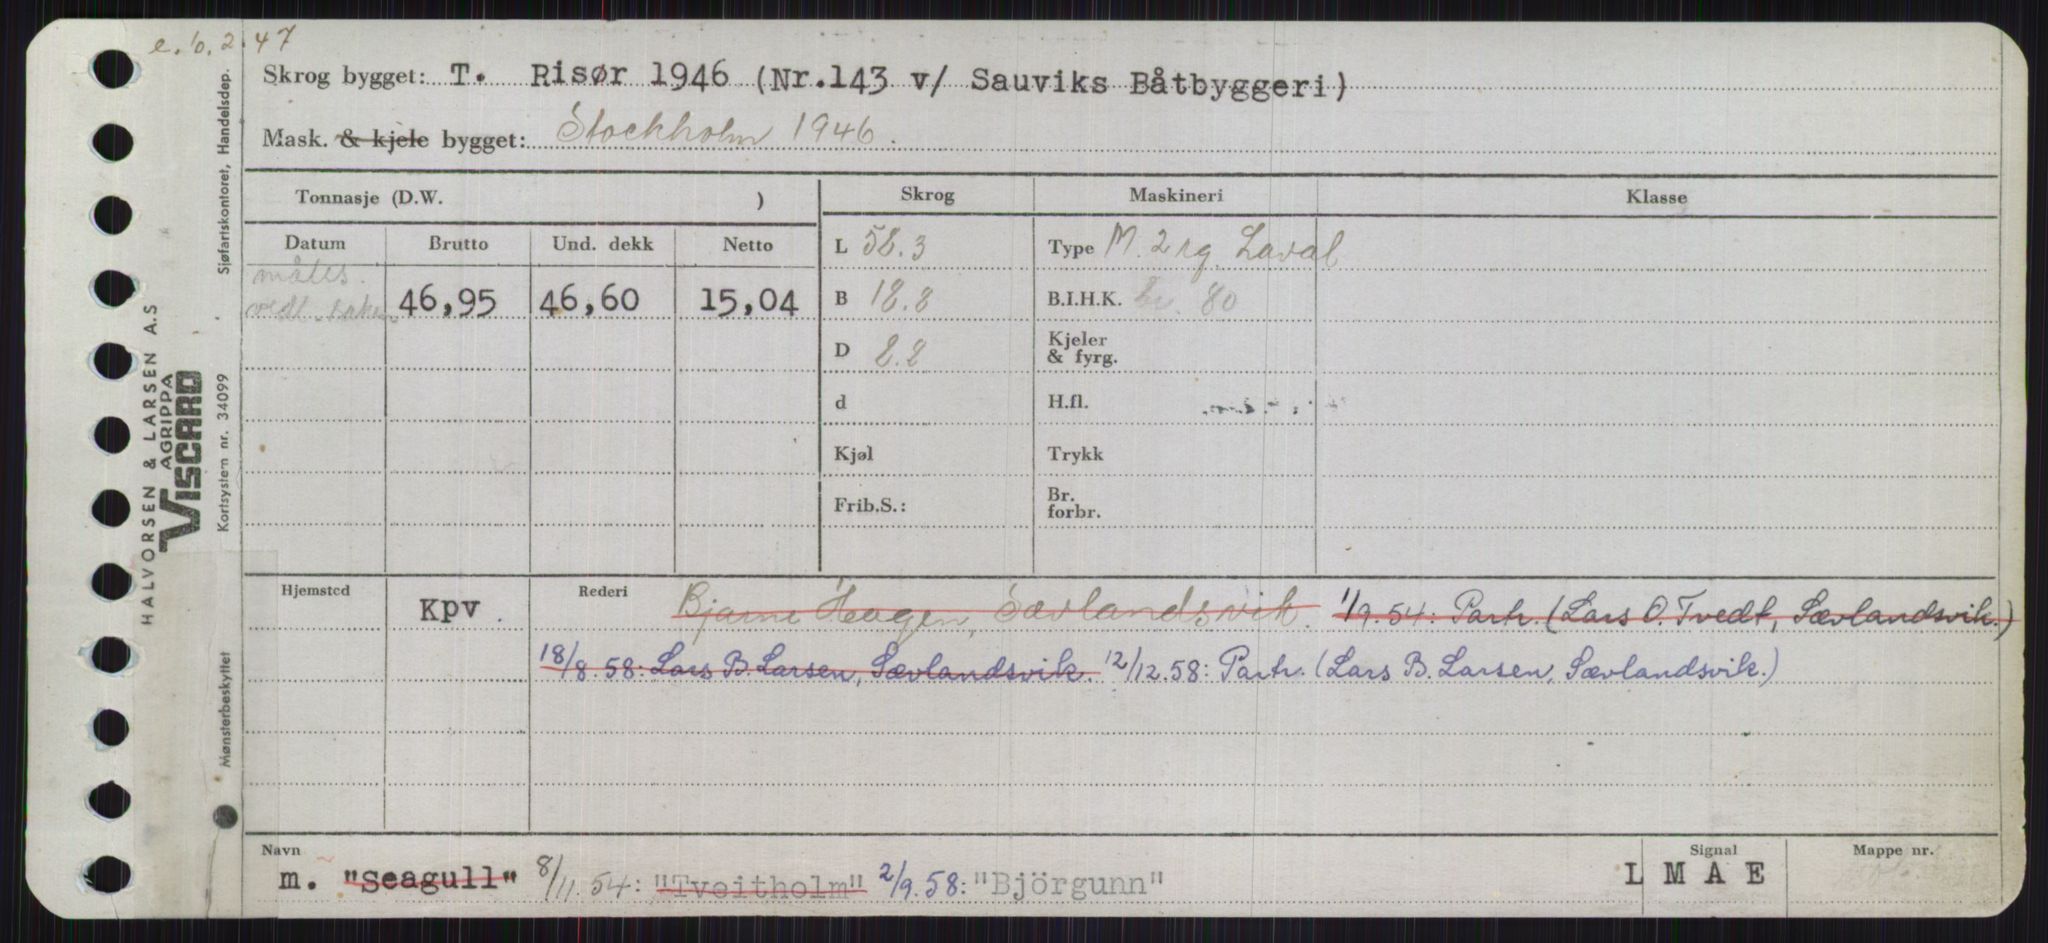 e. 10.2.47
Skrog bygget: T. Risør 1946 (Nr.143 v/ Sauviks Båtbyggeri)
Mask. & kjele bygget: Stockholm 1946.
Tonnasje (D.W. )
Skrog
Maskineri
Klasse
Datum
Brutto
Und. dekk
Netto
måles
vedt.
46,95
46,60
15,04
L 58.3
B 18.8
D 8.8
d
Kjøl
Frib.S.:
Type M. 2 sg. Laval
B.I.H.K. 80
Kjeler
& fyrg.
H.fl.
Trykk
Br.
forbr.
Hjemsted
Kpv.
Rederi
Bjarne Haugen, Sævlandsvik. 1/9.54: Partr. (Lars O. Tvedt, Sævlandsvik.)
18/8.58: Lars B. Larsen, Sævlandsvik. 12/12.58: Partr. (Lars B. Larsen, Sævlandsvik.)
Navn
m. "Seagull" 8/11.54: "Tveitholm" 2/9.58: "Björgunn"
Signal
L M A E
Mappe nr.
HALVORSEN & LARSEN A.S
AGRIPPA
VISCARD
Mønsterbeskyttet
Kortsystem nr. 34099
Sjøfartskontoret, Handelsdep.